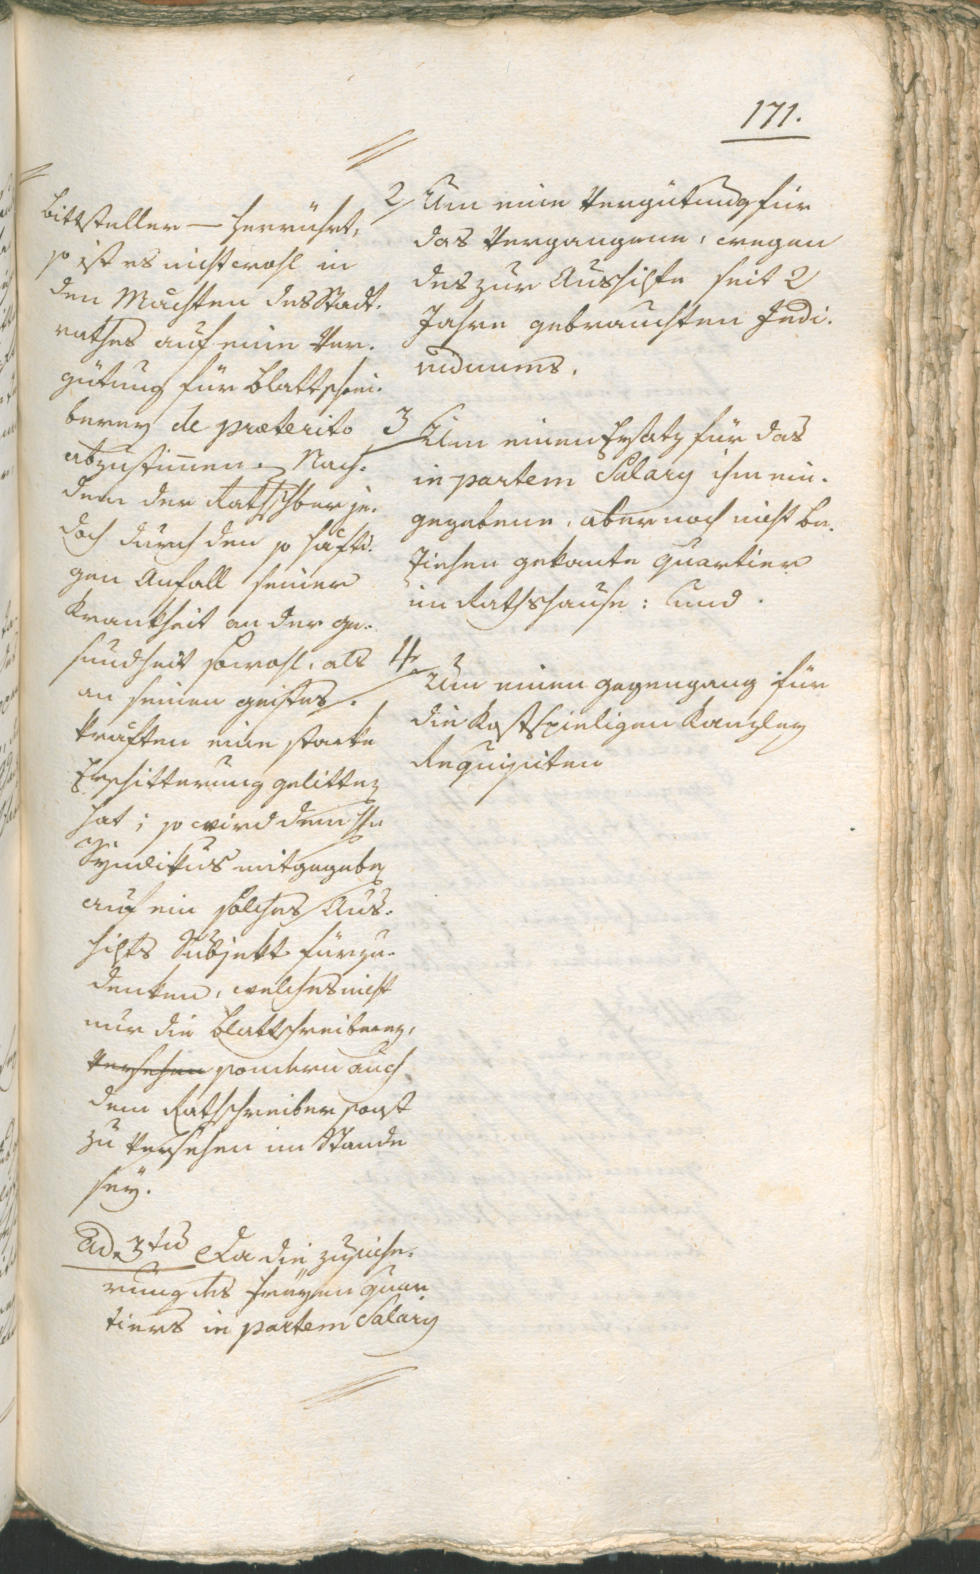 171.
Bittsteller — herrührt,
so ist es nicht wohl in
den Mächten des Stadt-
rathes auf eine Ver-
gütung für Blattschrei-
berey de præterito
abzustimmen. Nach-
dem der Rathschber je-
doch durch den so häfti-
gen Anfall seiner
Krankheit an der ge-
sundheit sowohl, als
an seinen geistes-
kräften eine starke
Erschitterung gelitten
hat; so wird dem Hr
Syndikus mitgegeben
auf ein solches Aus-
hilfs Subjekt fürzu-
denken, welches nicht
nur die Blattschreiberey,
versehen sondern auch
dem Rathschreiber sonst
zu versehen im Stande
sey.
Ad 3tiũ Da die zusiche-
rung des freyen Quar
tiers in partem Salary
2 Um eine Vergütung für
das Vergangene, wegen
des zur Aushilfe seit 2
Jahre gebrauchten Indi-
viduums.
3 Um einen Ersatz für das
in partem Salary ihm ein-
gegebene, aber noch nicht be-
ziehen gekonte Quartier
im Rathshause: und
4 Um einen gegengang für
die Kostspieligen Kanzley
Requisiten